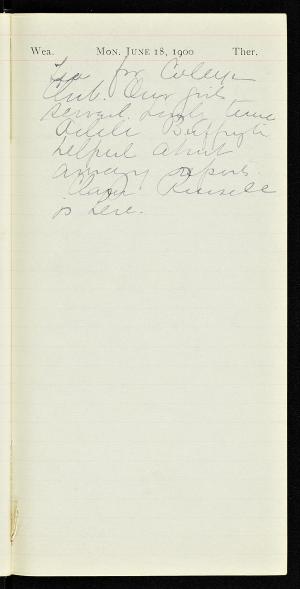 Wea. Mon. June 18, 1900 Ther.
Tea for College
Club. Our girls
served. time
Adele Buffington
helped about
reports.
Clara Russell
is here.